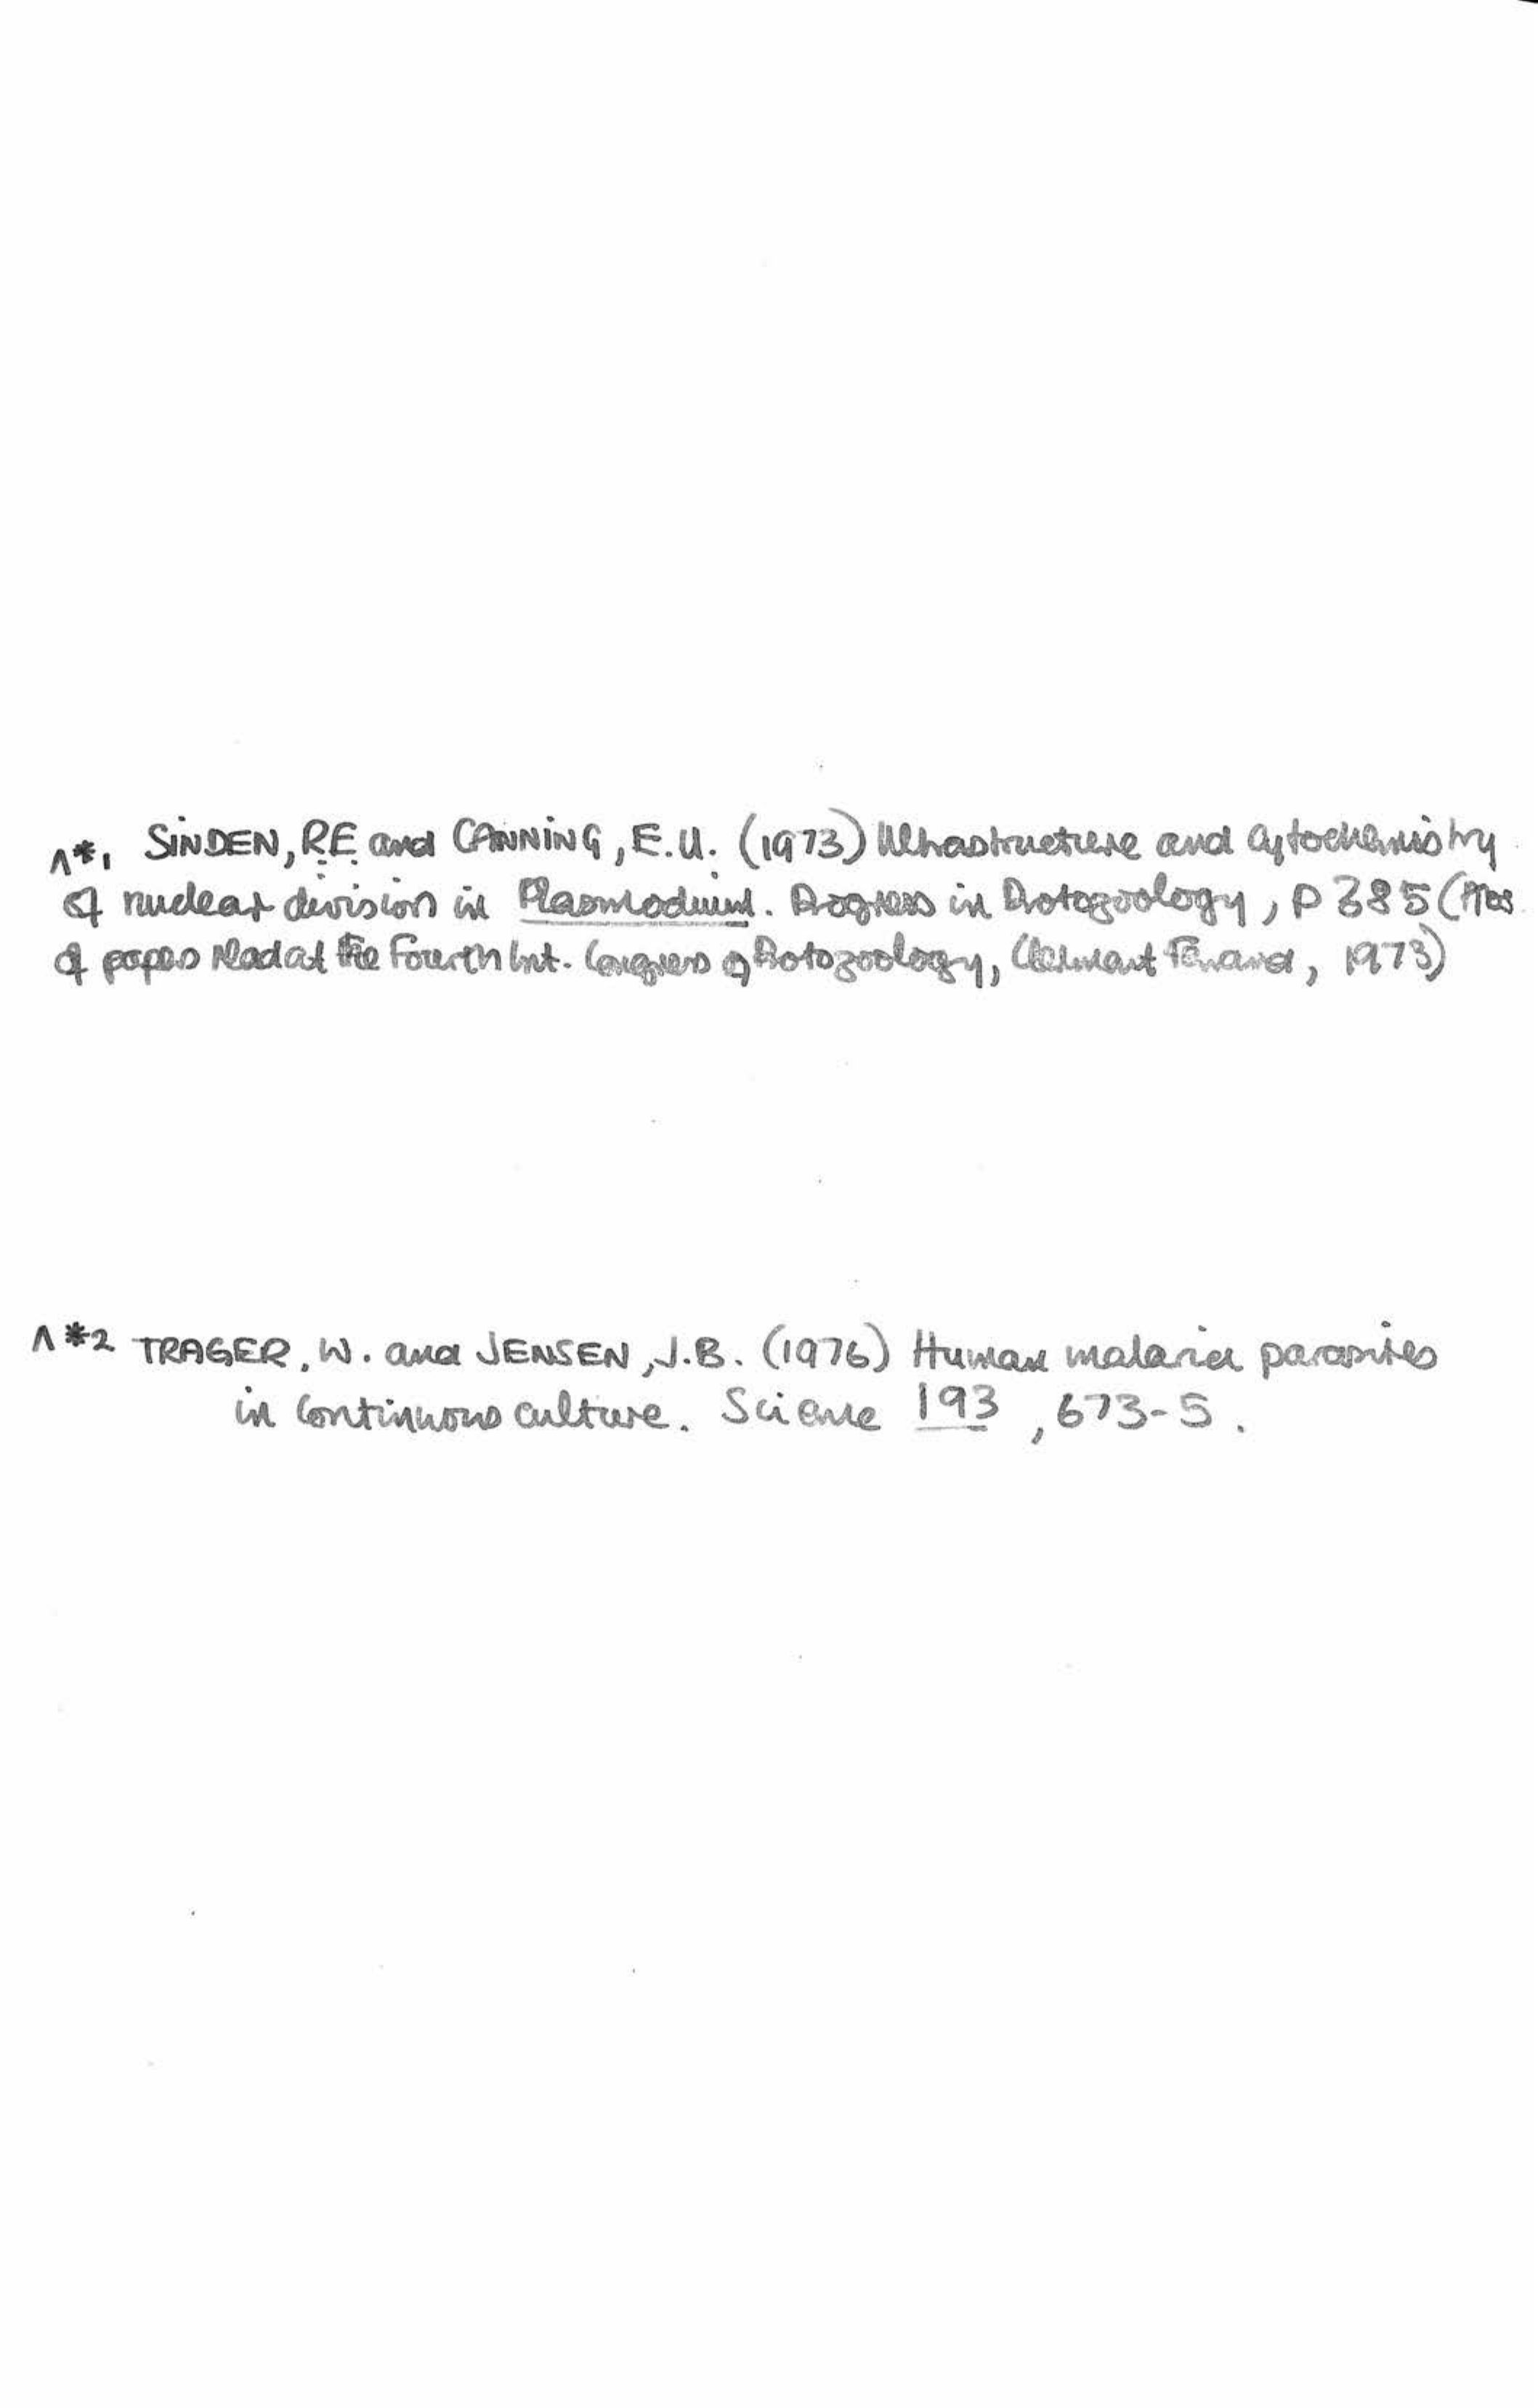 ^*1 SINDEN, R.E. and CANNING, E.U. (1973) Ultrastructure and cytochemistry
of nuclear division in Plasmodium. Progress in Protozoology, p 385
of papers read at the Fourth Int. Congress of Protozoology, Clermont Ferrand, 1973)
^*2 TRAGER, W. and JENSEN, J.B. (1976) Human malaria parasites
in continuous culture. Science 193, 673-5.